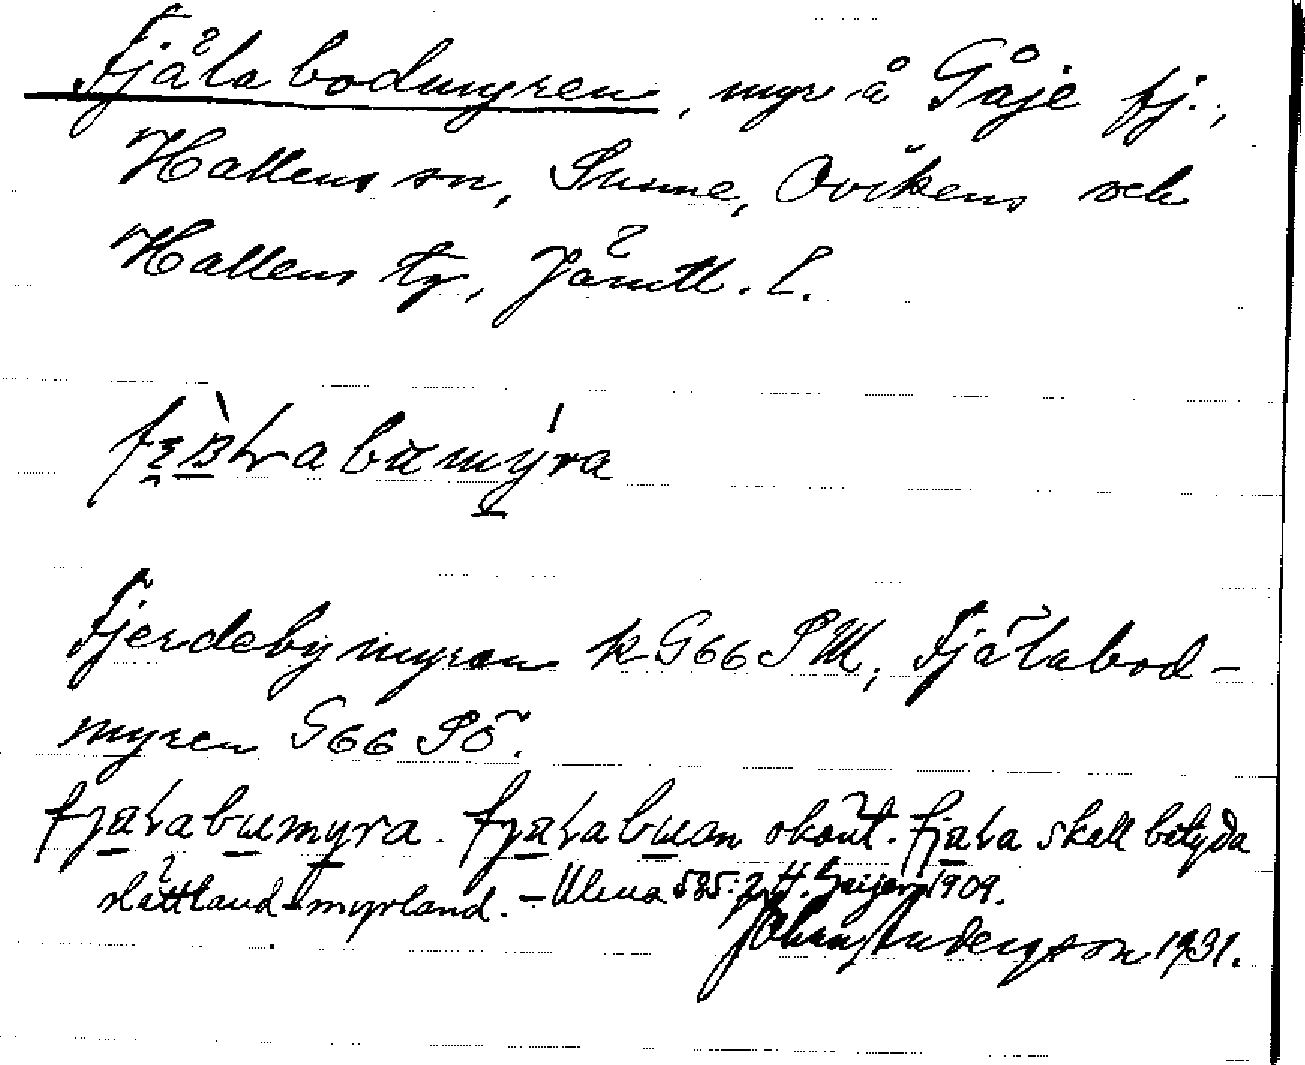 Fjälabodmyren, myr å Gåje fj.,
Hallens sn, Sunne, Ovikens och
Hallens tg, Jämtl. l.
Fjerdebymyren k G66 SM, Fjälabod-
myren G66 SÖ.
fjalabumyra. fjalabuan okänt. fjala skall betyda
slättland - myrland. - Ulma 585:2, H. Geijer, 1909.
Johan Andersson 1931.